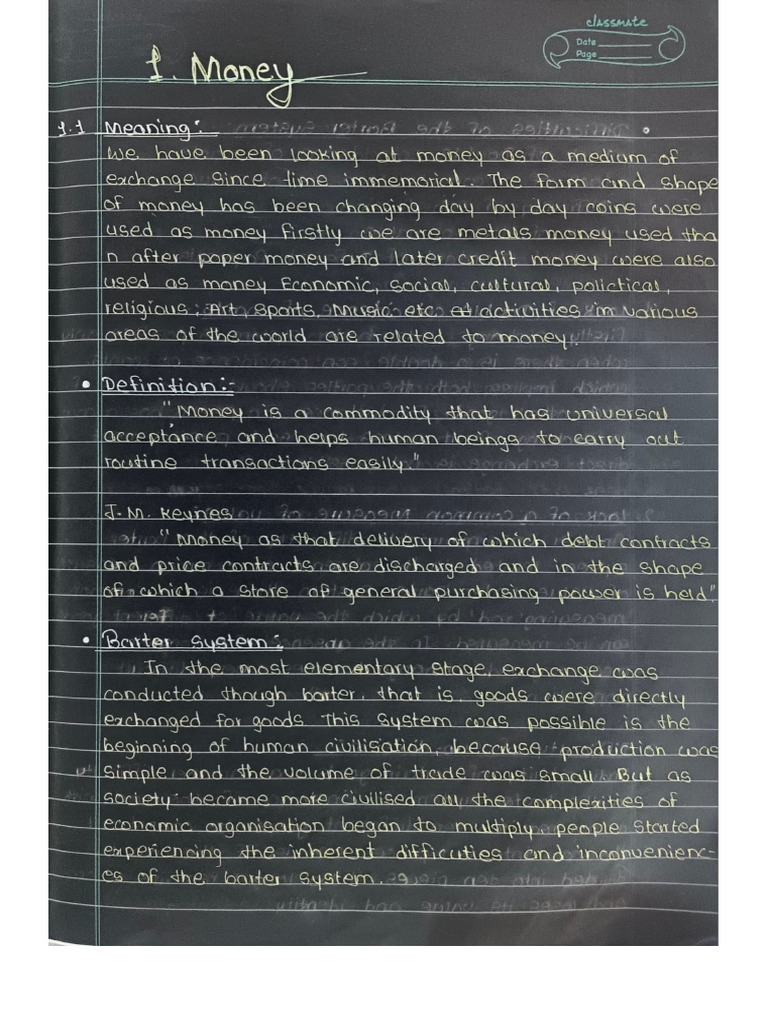 classmate
Date
Page
1. Money
1.1 Meaning:
We have been looking at money as a medium of
exchange since time immemorial. The form and shape
of money has been changing day by day coins were
used as money firstly we are metals money used tha
n after paper money and later credit money were also
used as money Economic, social, cultural, polictical,
religious, Art, sports, Music etc. activities in various
areas of the world are related to money.
• Definition:-
"Money is a commodity that has universal
acceptance and helps human beings to carry out
routine transactions easily."
J. M. Keynes
"Money as that delivery of which debt contracts
and price contracts are discharged and in the shape
of which a store of general purchasing power is held."
• Barter System:
In the most elementary stage, exchange was
conducted though barter, that is, goods were directly
exchanged for goods This system was possible is the
beginning of human civilisation, because production was
simple and the volume of trade was small. But as
society became more civilised all the complexities of
economic organisation began to multiply, people started
experiencing the inherent difficuties and inconvenienc-
es of the barter system.